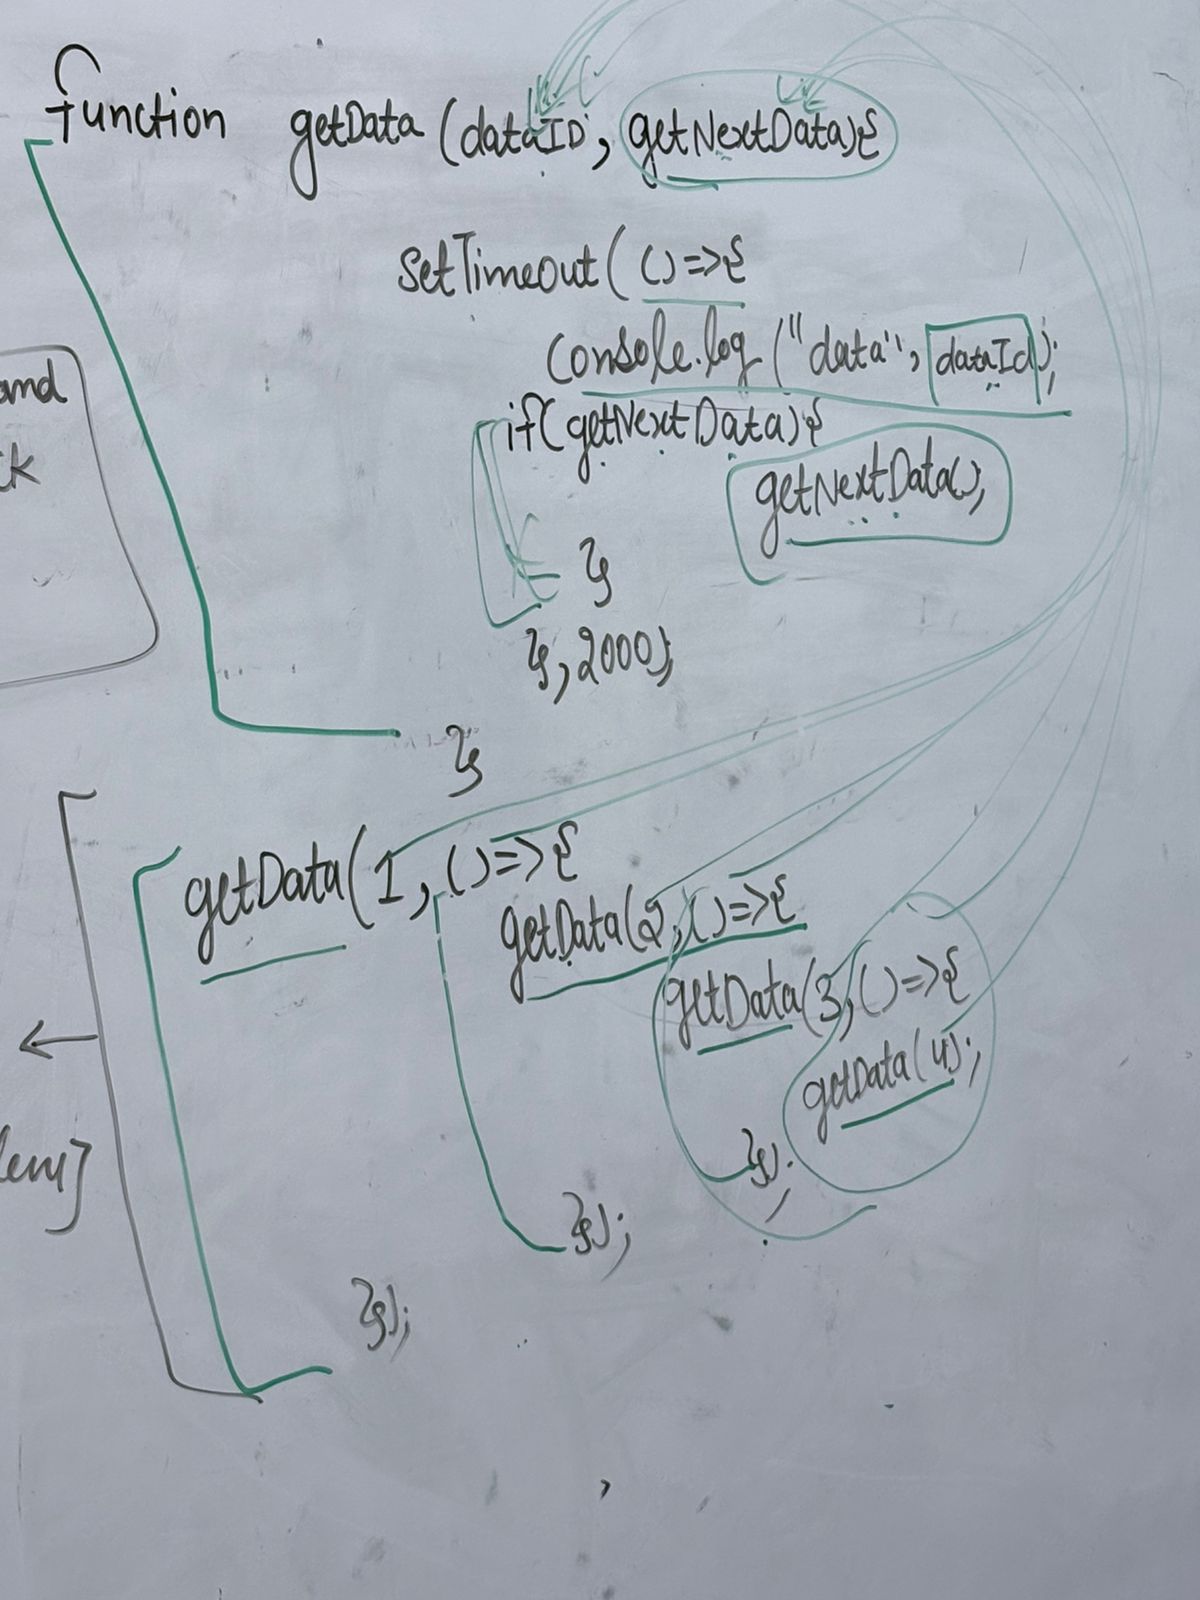 function getData (dataID, getNextData){
setTimeout( () => {
console.log ("data", dataId);
if(getNextData){
and
getNextData();
}
}, 2000);
}
getData(1, () => {
getData(2, () => {
getData(3, () => {
getData(4);
});
});
});